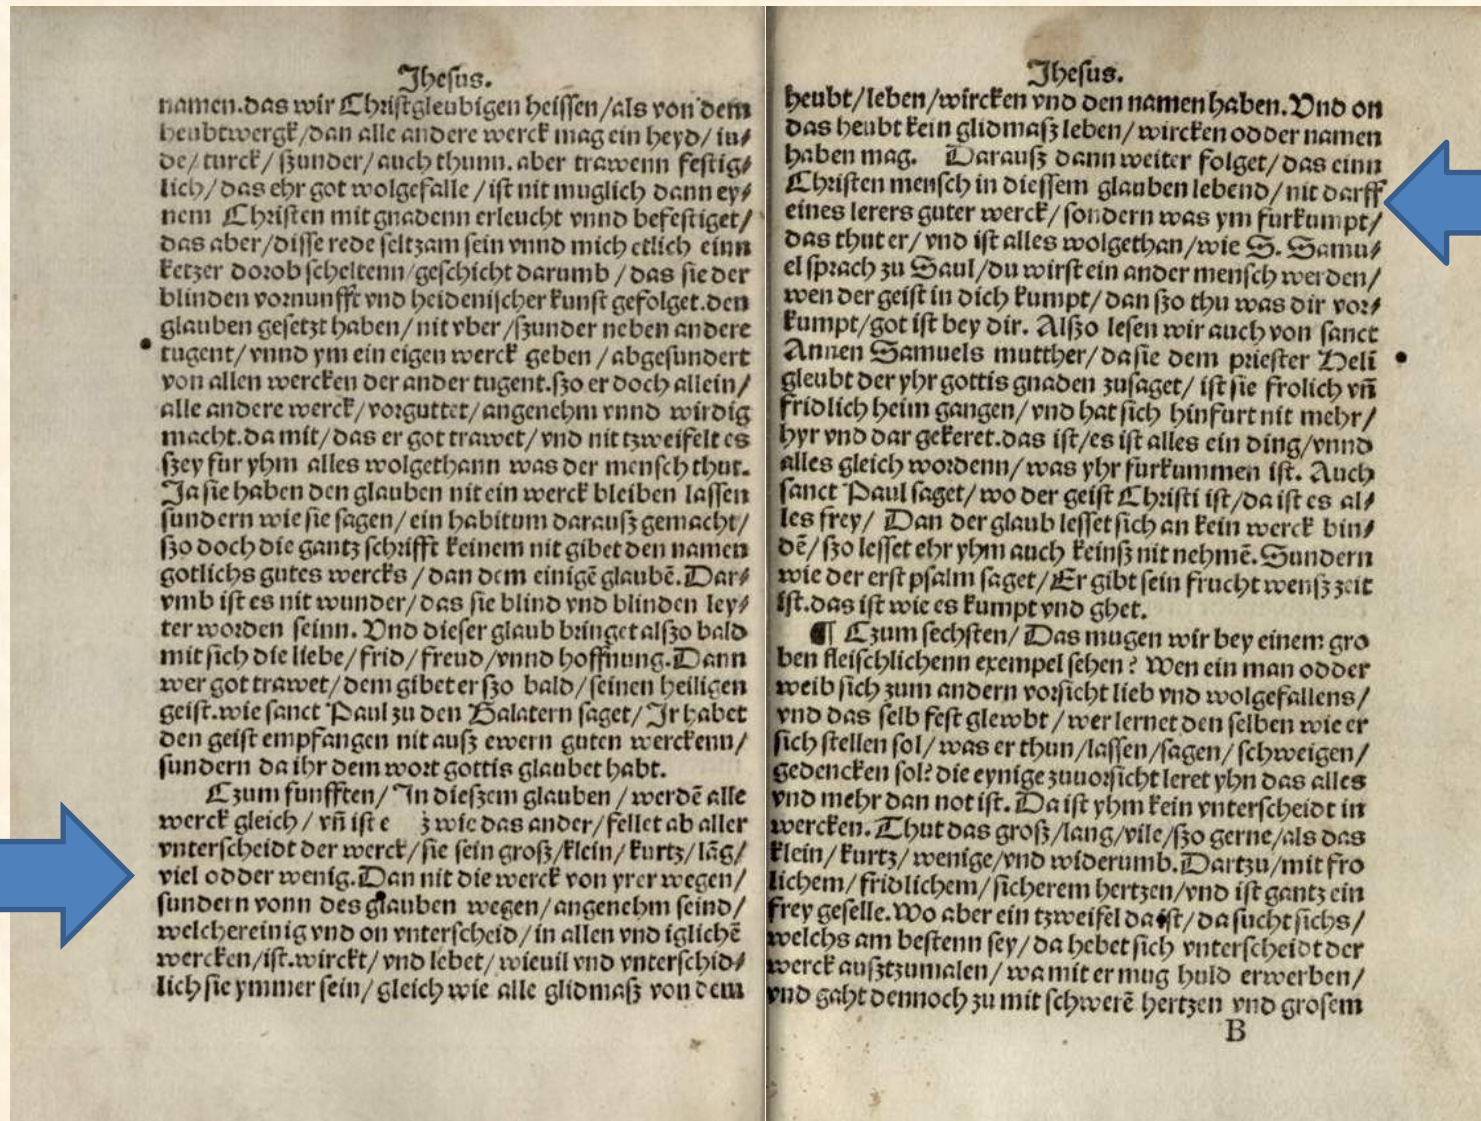 Jhesus.
namen.das wir Christgleubigen heissen/als von dem
heubtwergk/dan alle andere werck mag ein heyd/iu⸗
de/turck/szunder/auch thunn.aber trawenn festig⸗
lich/das ehr got wolgefalle/ist nit muglich dann ey⸗
nem Christen mit gnadenn erleucht vnnd befestiget/
das aber/disse rede seltzam sein vnnd mich etlich einn
ketzer dorob scheltenn/geschicht darumb/das sie der
blinden vornunfft vnd heidenischer kunst gefolget.den
glauben gesetzt haben/nit vber/szunder neben andere
tugent/vnnd ym ein eigen werck geben/abgesundert
von allen wercken der ander tugent.szo er doch allein/
alle andere werck/vorguttet/angenehm vnnd wirdig
macht.da mit/das er got trawet/vnd nit tzweifelt es
szey fur yhm alles wolgethann was der mensch thut.
Ja sie haben den glauben nit ein werck bleiben lassen
sundern wie sie sagen/ein habitum darausz gemacht/
szo doch die gantz schrifft keinem nit gibet den namen
gotlichs gutes wercks/dan dem einigē glaubē.Dar⸗
vmb ist es nit wunder/das sie blind vnd blinden ley⸗
ter worden seinn. Vnd dieser glaub bringet alszo bald
mit sich die liebe/frid/freud/vnnd hoffnung.Dann
wer got trawet/dem gibet er szo bald/seinen heiligen
geist.wie sanct Paul zu den Galatern saget/Jr habet
den geist empfangen nit ausz ewern guten werckenn/
sundern da ihr dem wort gottis glaubet habt.
Czum funfften/Jn dieszem glauben/werdē alle
werck gleich/vn̄ ist e z wie das ander/fellet ab aller
vnterscheidt der werck/sie sein grosz/klein/kurtz/lāg/
viel odder wenig.Dan nit die werck von yrer wegen/
sundern vonn des glauben wegen/angenehm seind/
welcher einig vnd on vnterscheid/in allen vnd iglichē
wercken/ist.wirckt/vnd lebet/wieuil vnd vnterschid⸗
lich sie ymmer sein/gleich wie alle glidmasz von dem
Jhesus.
heubt/leben/wircken vnd den namen haben.Vnd on
das heubt kein glidmasz leben/wircken odder namen
haben mag. Darausz dann weiter folget/das einn
Christen mensch in diessem glauben lebend/nit darff
eines lerers guter werck/sondern was ym furkumpt/
das thut er/vnd ist alles wolgethan/wie S. Samu⸗
el sprach zu Saul/du wirst ein ander mensch werden/
wen der geist in dich kumpt/dan szo thu was dir vor⸗
kumpt/got ist bey dir. Alszo lesen wir auch von sanct
Annen Samuels mutther/da sie dem priester Heli
gleubt der yhr gottis gnaden zusaget/ist sie frolich vn̄
fridlich heim gangen/vnd hat sich hinfurt nit mehr/
hyr vnd dar gekeret.das ist/es ist alles ein ding/vnnd
alles gleich wordenn/was yhr furkummen ist. Auch
sanct Paul saget/wo der geist Christi ist/da ist es al⸗
les frey/ Dan der glaub lesset sich an kein werck bin⸗
dē/szo lesset ehr yhm auch keinsz nit nehmē.Sundern
wie der erst psalm saget/Er gibt sein frucht wensz zeit
ist.das ist wie es kumpt vnd ghet.
¶ Czum sechsten/Das mugen wir bey einem gro
ben fleischlichenn exempel sehen? Wen ein man odder
weib sich zum andern vorsicht lieb vnd wolgefallens/
vnd das selb fest glewbt/wer lernet den selben wie er
sich stellen sol/was er thun/lassen/sagen/schweigen/
gedencken sol?die eynige zuuorsicht leret yhn das alles
vnd mehr dan not ist. Da ist yhm kein vnterscheidt in
wercken.Thut das grosz/lang/vile/szo gerne/als das
klein/kurtz/wenige/vnd widerumb.Dartzu/mit fro
lichem/fridlichem/sicherem hertzen/vnd ist gantz ein
frey geselle.Wo aber ein tzweifel da ist/da sucht sichs/
welchs am bestenn sey/da hebet sich vnterscheidt der
werck ausztzumalen/wa mit er mug huld erwerben/
vnd gaht dennoch zu mit schwerē hertzen vnd grosem
B